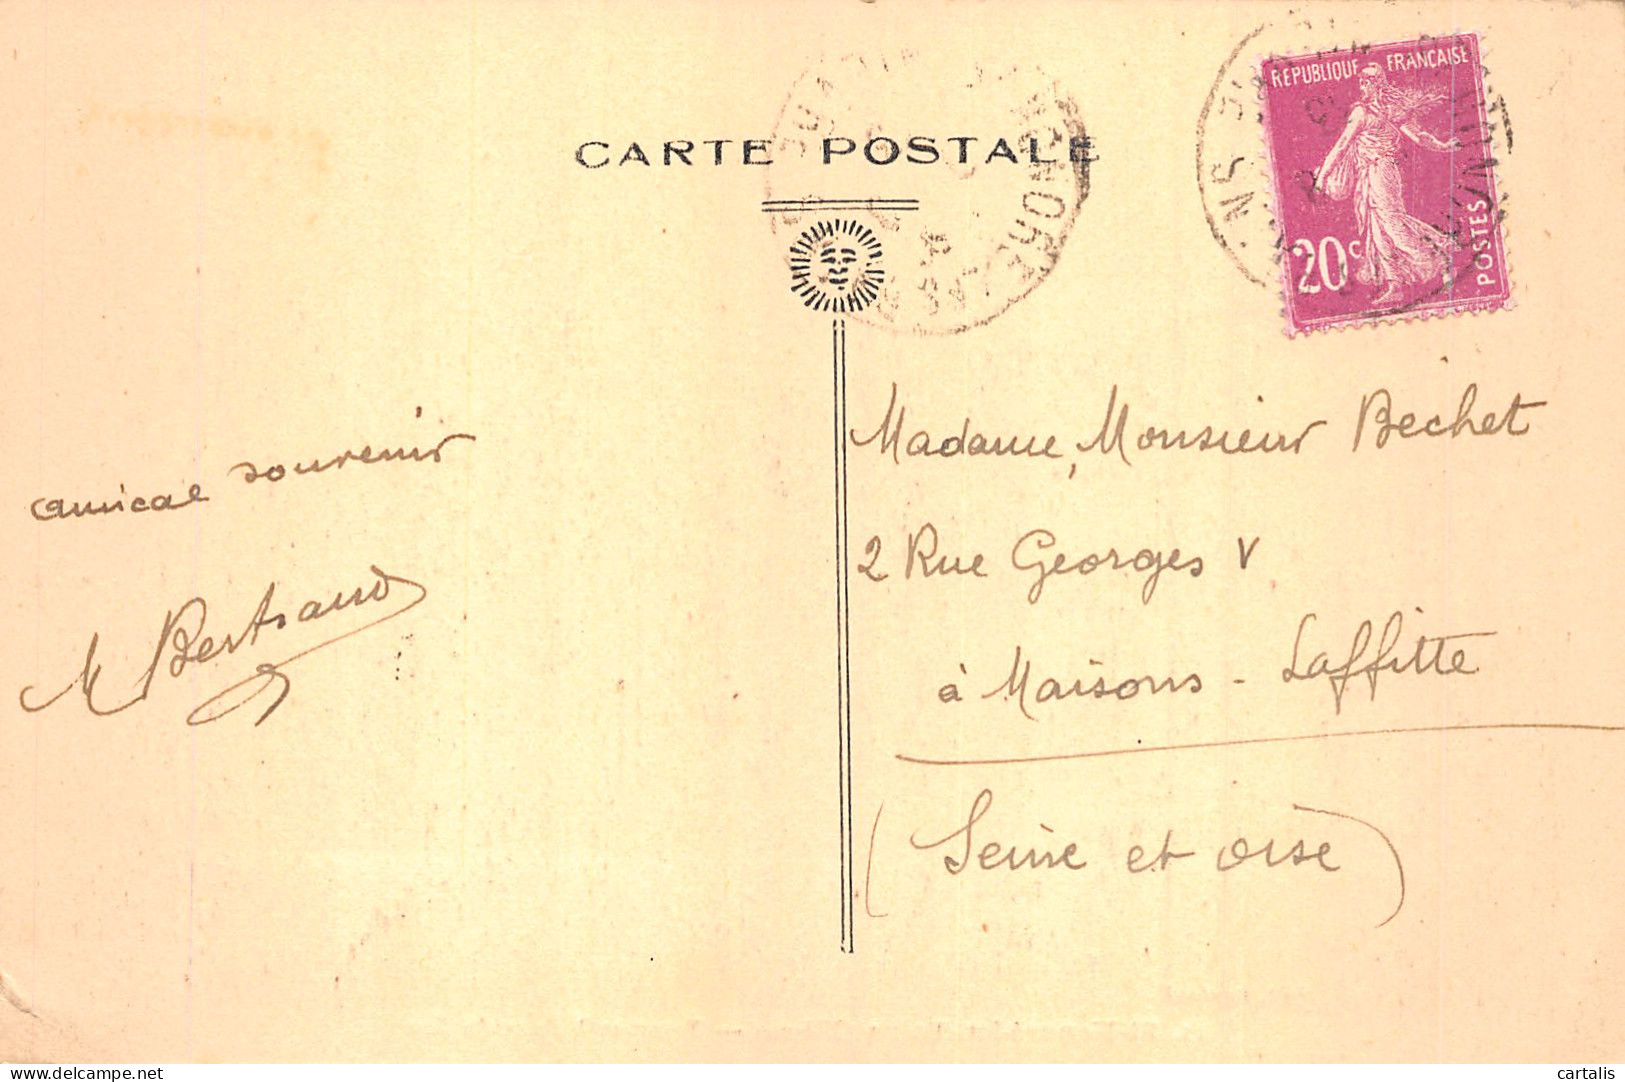 CARTE POSTALE
REPUBLIQUE FRANÇAISE
20c
POSTES
amical souvenir
M Bertrand
Madame, Monsieur Bechet
2 Rue Georges V
à Maisons - Laffitte
(Seine et Oise)
delcampe.net
cartalis